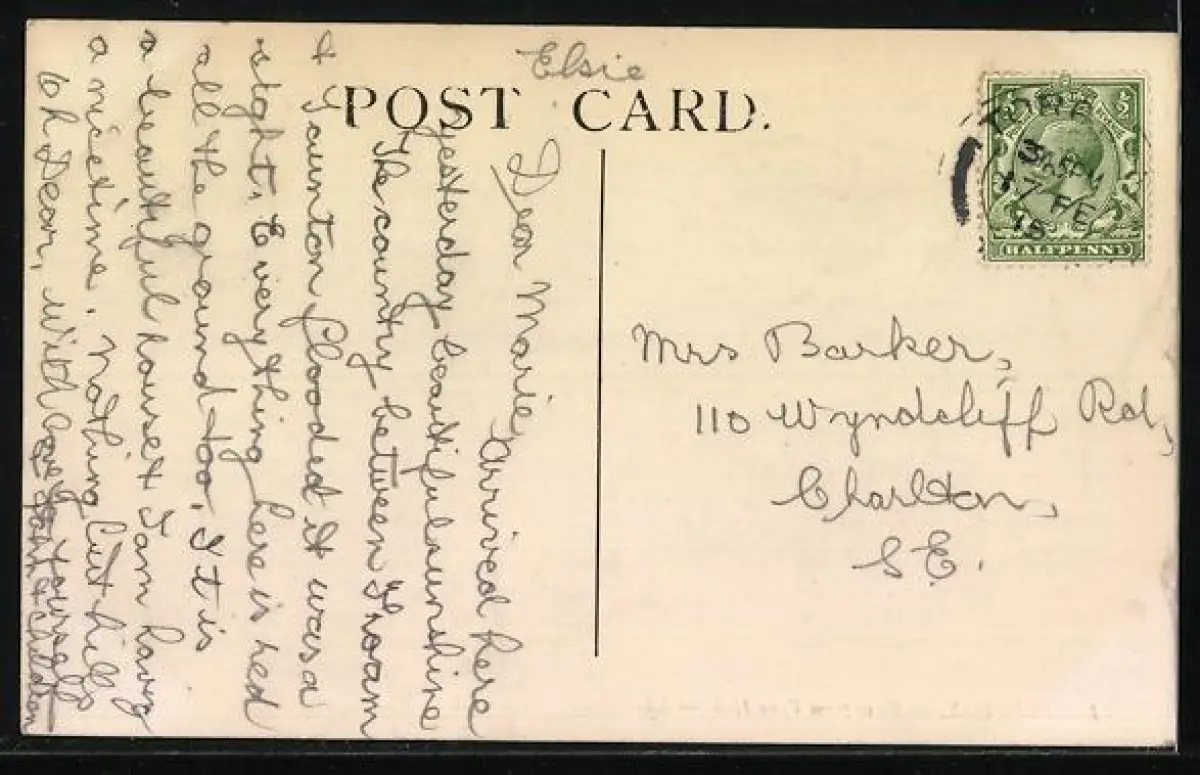 Elsie
POST CARD.
Dear Marie,
Arrived here
yesterday beautiful sunshine
The country between Froam
& Taunton flooded it was a
sight. Everything here is red
all the ground too, It is
a beautiful house & I am having
a nice time. Nothing but hills
Oh Dear, with love to yourself
& & children
HALFPENNY
Mrs Barker,
110 Wyndcliff Rd,
Charlton,
S.E.